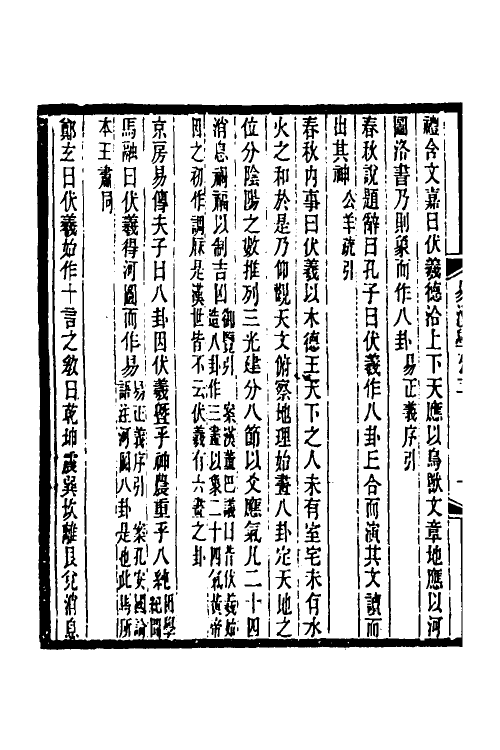 禮含文嘉曰伏羲德洽上下天應以鳥獸文章地應以河
圖洛書乃則象而作八卦易正義序引
春秋說題辭曰孔子曰伏羲作八卦丘合而演其文讀而
出其神公羊疏引
春秋內事曰伏羲以木德王天下之人未有室宅未有水
火之和於是乃仰觀天文俯察地理始畫八卦定天地之
位分陰陽之數推列三光建分八節以爻應氣凡二十四
消息禍福以制吉凶御覽引 案漢董巴議曰昔伏羲始
造八卦作三畫以象二十四氣黃帝
因之初作調厤是漢世皆不云伏羲有六畫之卦
京房易傳夫子曰八卦因伏羲曁乎神農重乎八純困學
紀聞
馬融曰伏羲得河圖而作易易正義序引 案孔安國論
語註河圖八卦是也此馬所
本王肅同
鄭玄曰伏羲始作十言之敎曰乾坤震巽坎離艮兌消息
易漢學